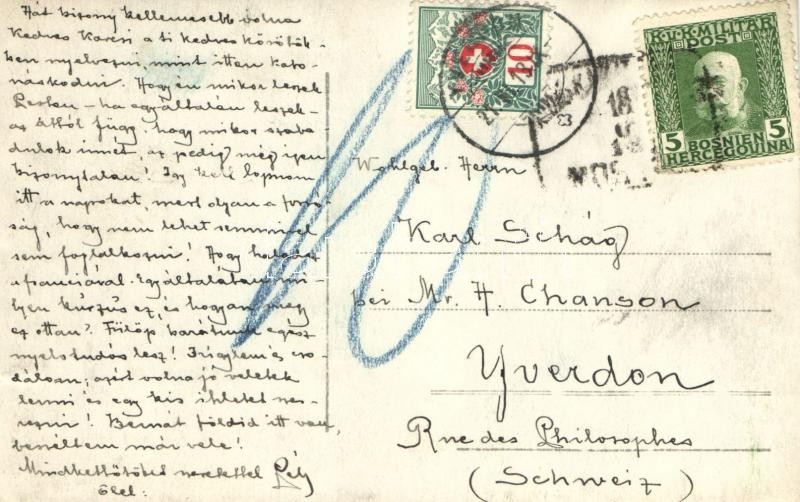 Hát bizony kellemesebb volna
Kedves Karcsi a ti kedves körötök-
ben nyelvezni, mint itten kato-
náskodni. Hogy én mikor leszek
Pesten – ha egyáltalán leszek –
az attól függ, hogy mikor szaba-
dulok innét, az pedig még igen
bizonytalan! Így kell lopnom
itt a napokat, mert olyan a forró-
ság, hogy nem lehet semmivel
sem foglalkozni! Hogy haladsz
a franciával. Egyáltalában mi-
lyen kurzus ez, és hogyan megy
ez ottan? Fülöp barátunk egész
nyelvtudós lesz! Irigylem és cso-
dálom; azért volna jó veletek
lenni és egy kis ihletet
! Bernát földid itt van,
beszéltem már vele!
Mindkettőtöket szeretettel
ölel:
10
K.u.K. MILITÄR
POST
5 5
BOSNIEN
HERCEGOVINA
18
Wohlgeb. Herrn
Karl Schág
bei Mr. H. Chanson
Yverdon
Rue des Philosophes
(Schweiz)
10